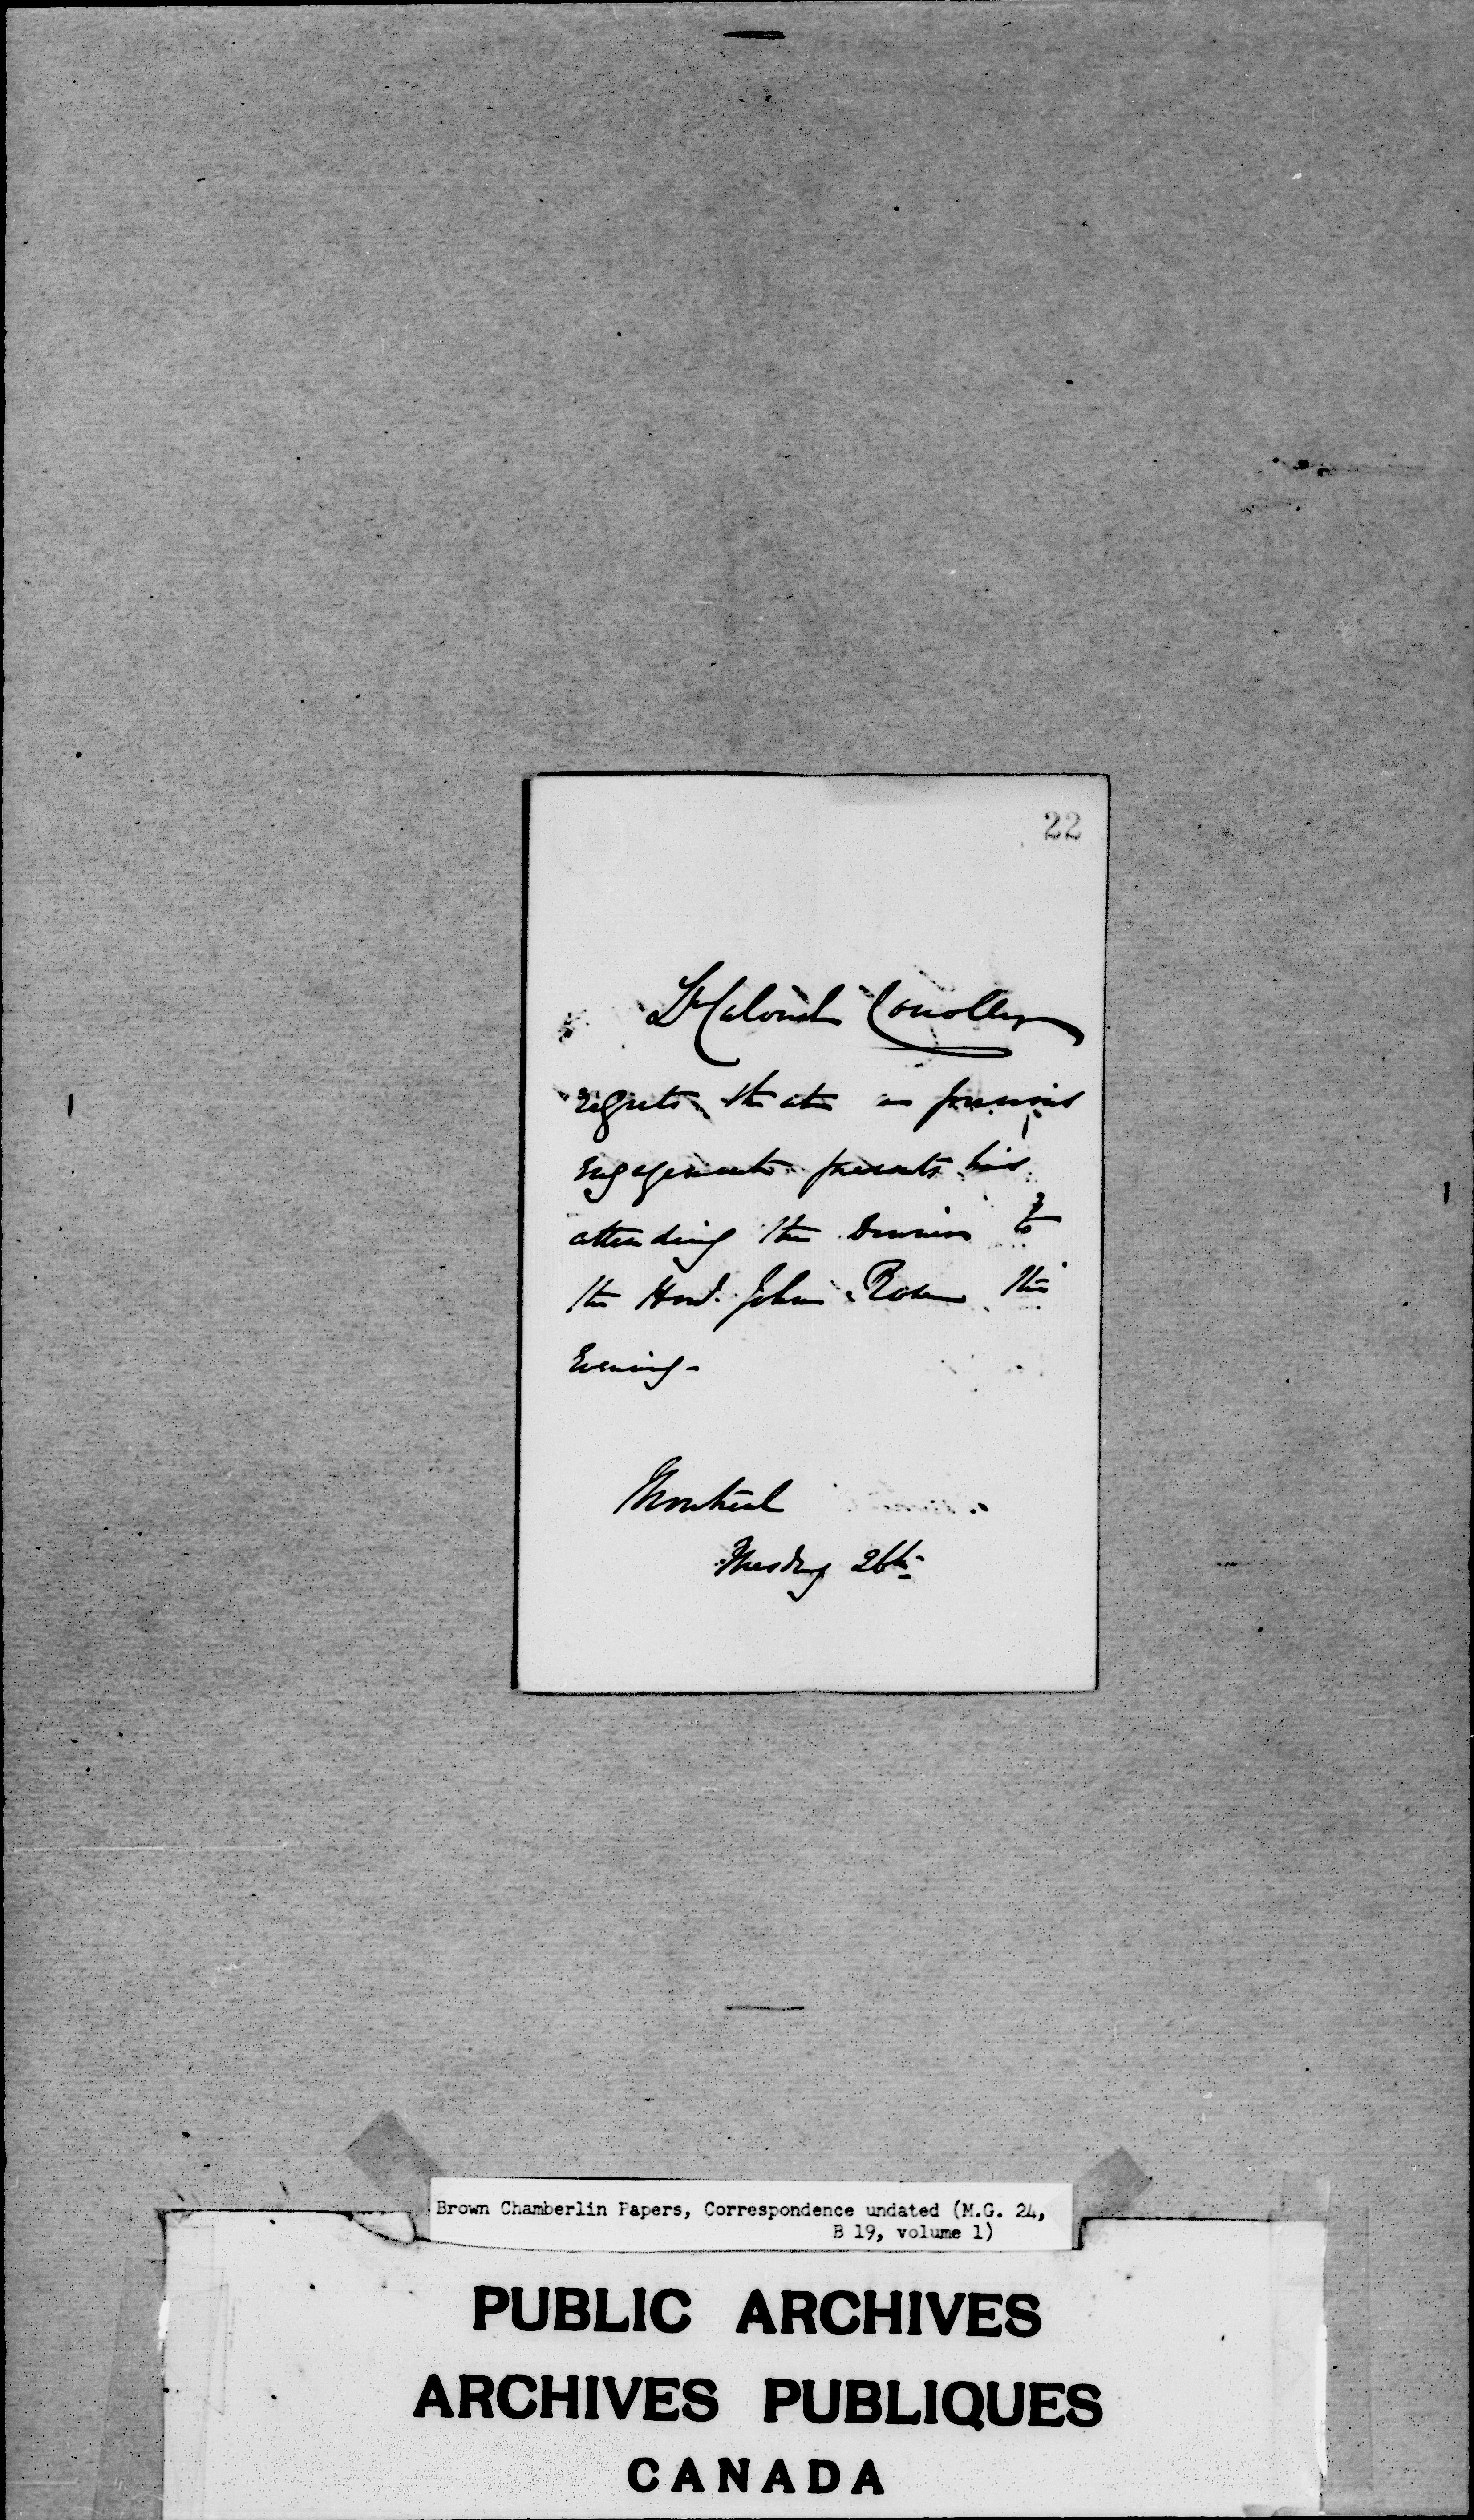 22
Lt Colonel Conolly
regrets that a previous
engagement prevents his
attending the Dinner to
the Honl. John Rose this
Evening -
Montreal
Tuesday 26th
Brown Chamberlin Papers, Correspondence undated (M.G. 24,
B 19, volume 1)
PUBLIC ARCHIVES
ARCHIVES PUBLIQUES
CANADA